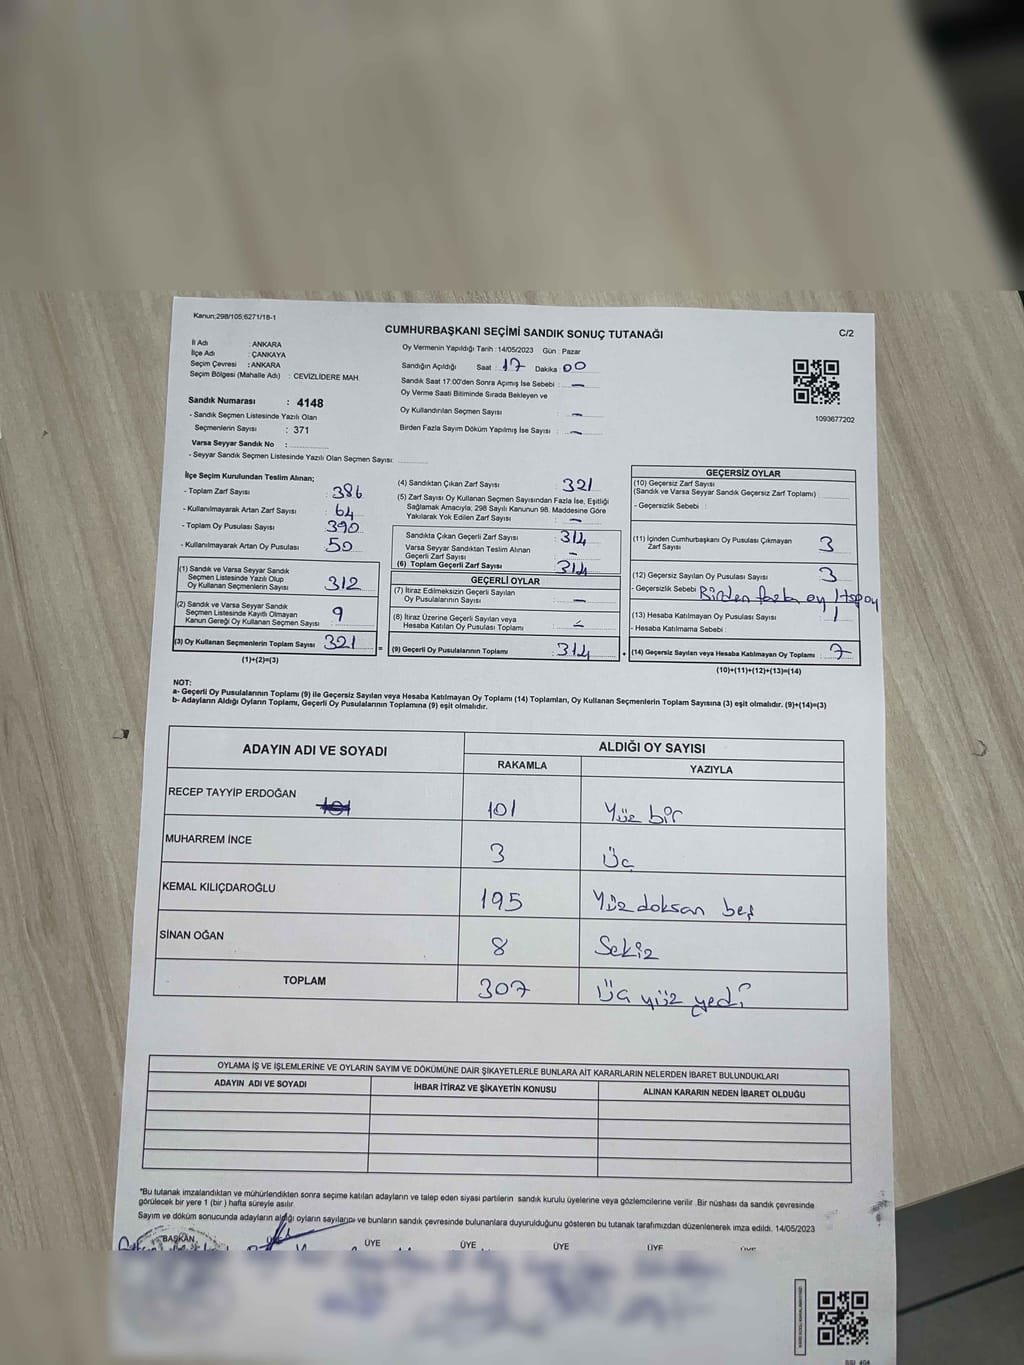 Kanun;298/105;6271/18-1
CUMHURBAŞKANI SEÇİMİ SANDIK SONUÇ TUTANAĞI
C/2
İl Adı : ANKARA
İlçe Adı : ÇANKAYA
Seçim Çevresi : ANKARA
Seçim Bölgesi (Mahalle Adı) : CEVİZLİDERE MAH.
Sandık Numarası : 4148
- Sandık Seçmen Listesinde Yazılı Olan
Seçmenlerin Sayısı : 371
Varsa Seyyar Sandık No :
- Seyyar Sandık Seçmen Listesinde Yazılı Olan Seçmen Sayısı:
Oy Vermenin Yapıldığı Tarih :14/05/2023 Gün : Pazar
Sandığın Açıldığı Saat : 17 Dakika : 00
Sandık Saat 17:00'den Sonra Açımış İse Sebebi : –
Oy Verme Saati Bitiminde Sırada Bekleyen ve
Oy Kullandırılan Seçmen Sayısı : –
Birden Fazla Sayım Döküm Yapılmış İse Sayısı : –
1093677202
İlçe Seçim Kurulundan Teslim Alınan;
- Toplam Zarf Sayısı : 386
- Kullanılmayarak Artan Zarf Sayısı : 64
- Toplam Oy Pusulası Sayısı : 390
- Kullanılmayarak Artan Oy Pusulası : 50
(1) Sandık ve Varsa Seyyar Sandık
Seçmen Listesinde Yazılı Olup
Oy Kullanan Seçmenlerin Sayısı : 312
(2) Sandık ve Varsa Seyyar Sandık
Seçmen Listesinde Kayıtlı Olmayan
Kanun Gereği Oy Kullanan Seçmen Sayısı : 9
(3) Oy Kullanan Seçmenlerin Toplam Sayısı : 321
(1)+(2)=(3)
(4) Sandıktan Çıkan Zarf Sayısı : 321
(5) Zarf Sayısı Oy Kullanan Seçmen Sayısından Fazla İse, Eşitliği
Sağlamak Amacıyla; 298 Sayılı Kanunun 98. Maddesine Göre
Yakılarak Yok Edilen Zarf Sayısı : –
Sandıkta Çıkan Geçerli Zarf Sayısı : 314
Varsa Seyyar Sandıktan Teslim Alınan
Geçerli Zarf Sayısı : –
(6) Toplam Geçerli Zarf Sayısı : 314
GEÇERLİ OYLAR
(7) İtiraz Edilmeksizin Geçerli Sayılan
Oy Pusulalarının Sayısı : –
(8) İtiraz Üzerine Geçerli Sayılan veya
Hesaba Katılan Oy Pusulası Toplamı :
=
(9) Geçerli Oy Pusulalarının Toplamı : 314
+
GEÇERSİZ OYLAR
(10) Geçersiz Zarf Sayısı
(Sandık ve Varsa Seyyar Sandık Geçersiz Zarf Toplamı) :
- Geçersizlik Sebebi :
(11) İçinden Cumhurbaşkanı Oy Pusulası Çıkmayan
Zarf Sayısı : 3
(12) Geçersiz Sayılan Oy Pusulası Sayısı : 3
- Geçersizlik Sebebi : Birden fazla oy
(13) Hesaba Katılmayan Oy Pusulası Sayısı : 1
- Hesaba Katılmama Sebebi :
(14) Geçersiz Sayılan veya Hesaba Katılmayan Oy Toplamı : 7
(10)+(11)+(12)+(13)=(14)
NOT:
a- Geçerli Oy Pusulalarının Toplamı (9) ile Geçersiz Sayılan veya Hesaba Katılmayan Oy Toplamı (14) Toplamları, Oy Kullanan Seçmenlerin Toplam Sayısına (3) eşit olmalıdır. (9)+(14)=(3)
b- Adayların Aldığı Oyların Toplamı, Geçerli Oy Pusulalarının Toplamına (9) eşit olmalıdır.
ADAYIN ADI VE SOYADI
ALDIĞI OY SAYISI
RAKAMLA YAZIYLA
RECEP TAYYİP ERDOĞAN 101 101 Yüz bir
MUHARREM İNCE 3 Üç
KEMAL KILIÇDAROĞLU 195 Yüz doksan beş
SİNAN OĞAN 8 Sekiz
TOPLAM 307 Üç yüz yedi
OYLAMA İŞ VE İŞLEMLERİNE VE OYLARIN SAYIM VE DÖKÜMÜNE DAİR ŞİKAYETLERLE BUNLARA AİT KARARLARIN NELERDEN İBARET BULUNDUKLARI
ADAYIN ADI VE SOYADI İHBAR İTİRAZ VE ŞİKAYETİN KONUSU ALINAN KARARIN NEDEN İBARET OLDUĞU
*Bu tutanak imzalandıktan ve mühürlendikten sonra seçime katılan adayların ve talep eden siyasi partilerin sandık kurulu üyelerine veya gözlemcilerine verilir. Bir nüshası da sandık çevresinde
görülecek bir yere 1 (bir) hafta süreyle asılır.
Sayım ve döküm sonucunda adayların aldığı oyların sayılarını ve bunların sandık çevresinde bulunanlara duyurulduğunu gösteren bu tutanak tarafımızdan düzenlenerek imza edildi. 14/05/2023
BAŞKAN ÜYE ÜYE ÜYE ÜYE ÜYE